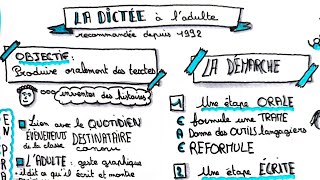 LA DICTÉE à l'adulte
recommandée depuis 1992
OBJECTIF:
Produire oralement des textes
inventer des histoires
Lien avec le QUOTIDIEN
ÉVÉNEMENTS
de la classe
DESTINATAIRE
connu
L'ADULTE: geste graphique
il dit ce qu'il écrit et montre
EN PRA
LA DÉMARCHE
1 Une étape ORALE
E formule une TRAME
A Donne des OUTILS langagiers
E REFORMULE
2 Une étape ÉCRITE